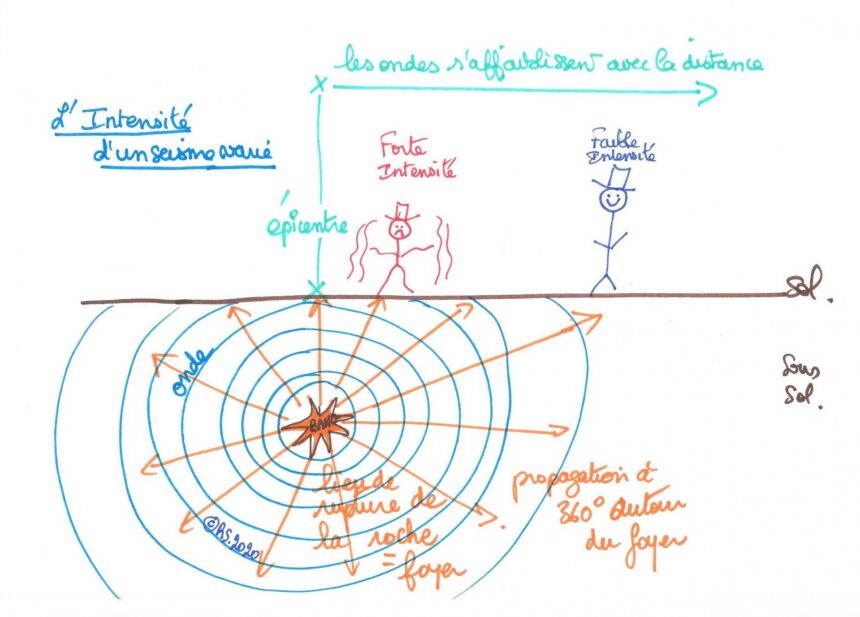 les ondes s'affaiblissent avec la distance
L'Intensité
d'un seisme varié
Forte
Intensité
Faible
Intensité
épicentre
Sol.
Sous
Sol.
onde
BANG
lieu de
rupure de
la roche
= foyer
propagation à
360° autour
du foyer
©RS.2020